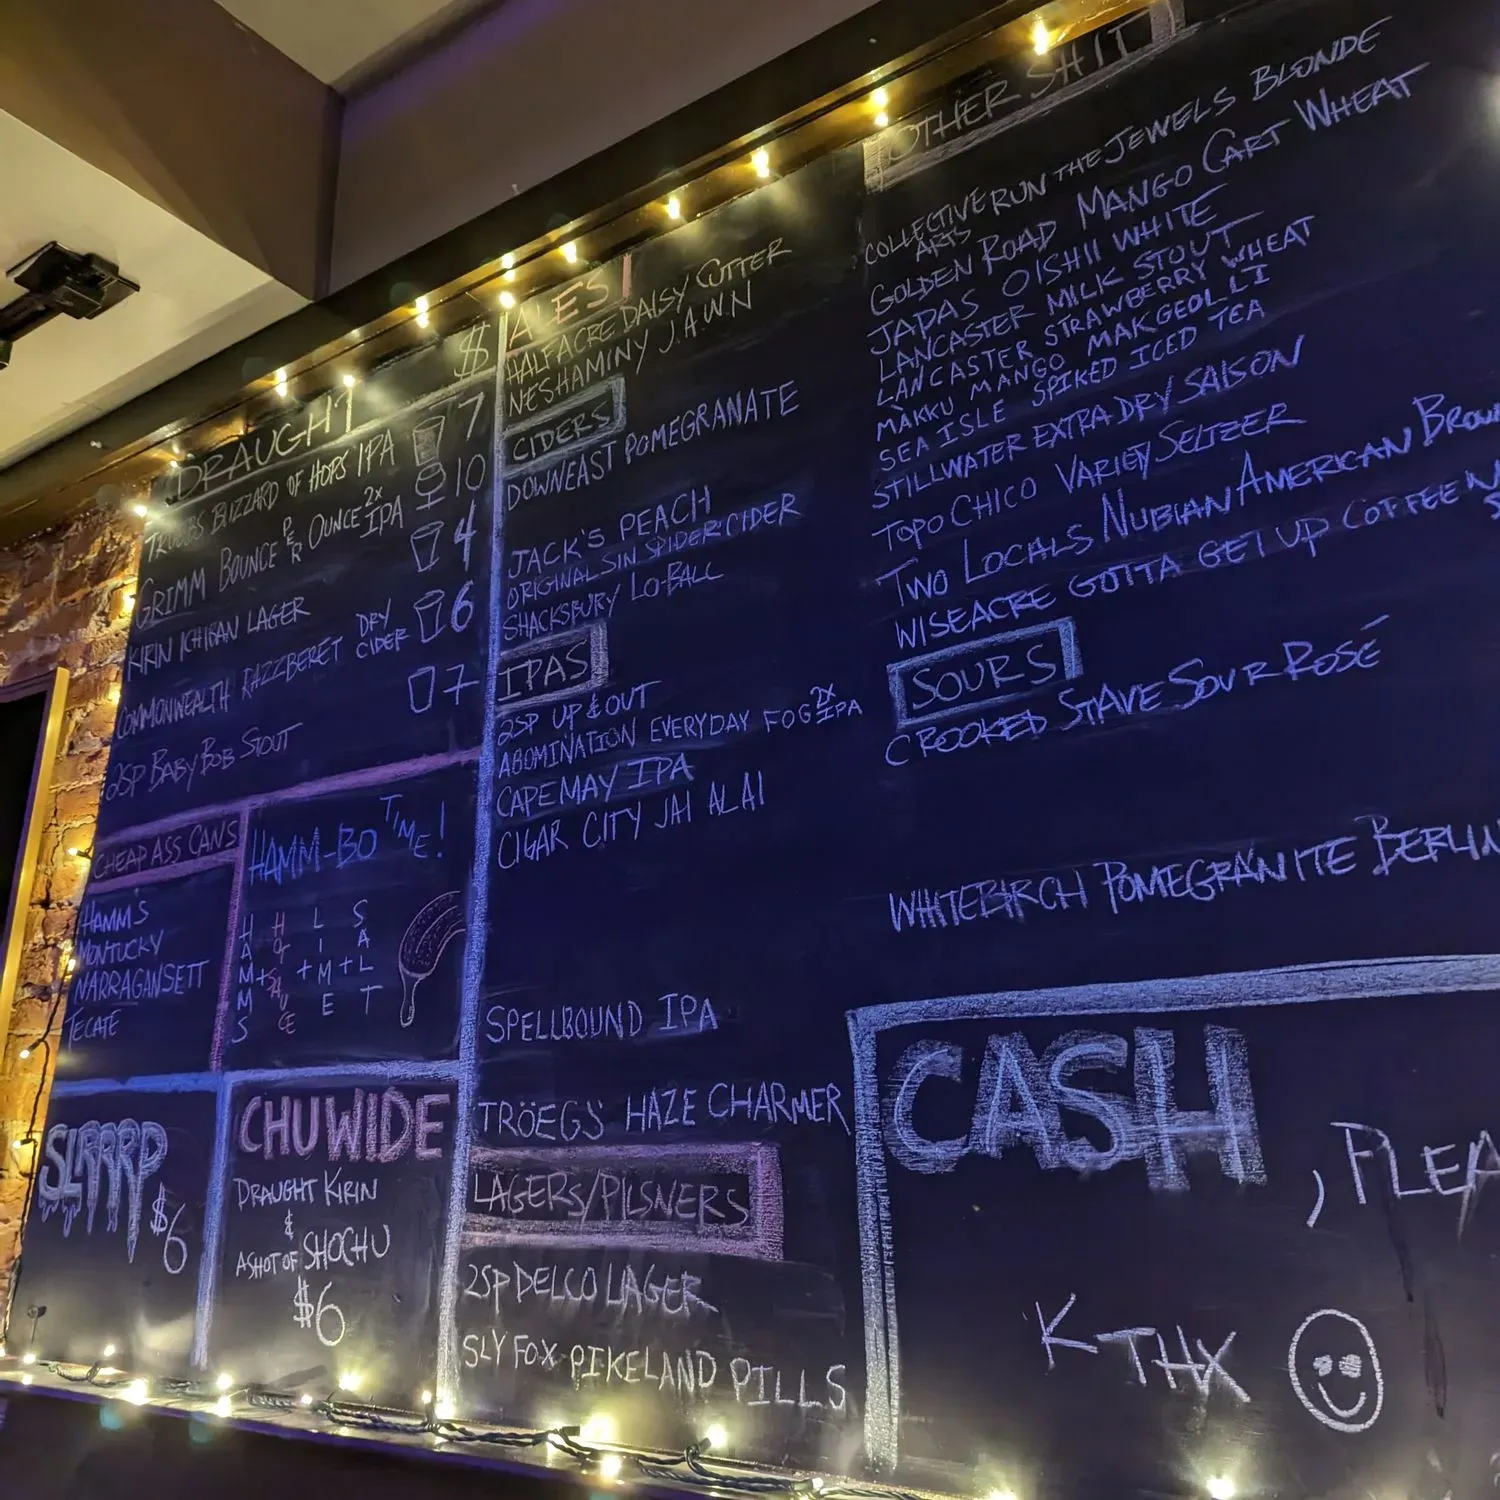 DRAUGHT $
TRÖEGS BLIZZARD OF HOPS IPA 7
GRIMM BOUNCE PER OUNCE 2X IPA 10
KIRIN ICHIBAN LAGER 4
COMMONWEALTH RAZZBERET DRY CIDER 6
2SP BABY BOB STOUT 7
CHEAP ASS CANS
HAMM'S
MONTUCKY
NARRAGANSETT
TECATE
HAMM-BO TIME!
HAMMS + HOT SAUCE + LIME + SALT
SLRRRP
$6
CHUWIDE
DRAUGHT KIRIN
&
A SHOT OF SHOCHU
$6
ALES
HALFACRE DAISY CUTTER
NESHAMINY J.A.W.N
CIDERS
DOWNEAST POMEGRANATE
JACK'S PEACH
ORIGINAL SIN SPIDER CIDER
SHACKSBURY LO-BALL
IPAS
2SP UP & OUT
ABOMINATION EVERYDAY FOG 2X IPA
CAPE MAY IPA
CIGAR CITY JAI ALAI
SPELLBOUND IPA
TRÖEGS HAZE CHARMER
LAGERS/PILSNERS
2SP DELCO LAGER
SLY FOX PIKELAND PILLS
OTHER SHIT
COLLECTIVE ARTS RUN THE JEWELS BLONDE
GOLDEN ROAD MANGO CART WHEAT
JAPAS OISHII WHITE
LANCASTER MILK STOUT
LANCASTER STRAWBERRY WHEAT
MAKKU MANGO MAKGEOLLI
SEA ISLE SPIKED ICED TEA
STILLWATER EXTRA DRY SAISON
TOPO CHICO VARIETY SELTZER
TWO LOCALS NUBIAN AMERICAN BROW
WISEACRE GOTTA GET UP COFFEE
SOURS
CROOKED STAVE SOUR ROSÉ
WHITEBIRCH POMEGRANITE BERLIN
CASH
, PLEA
K THX